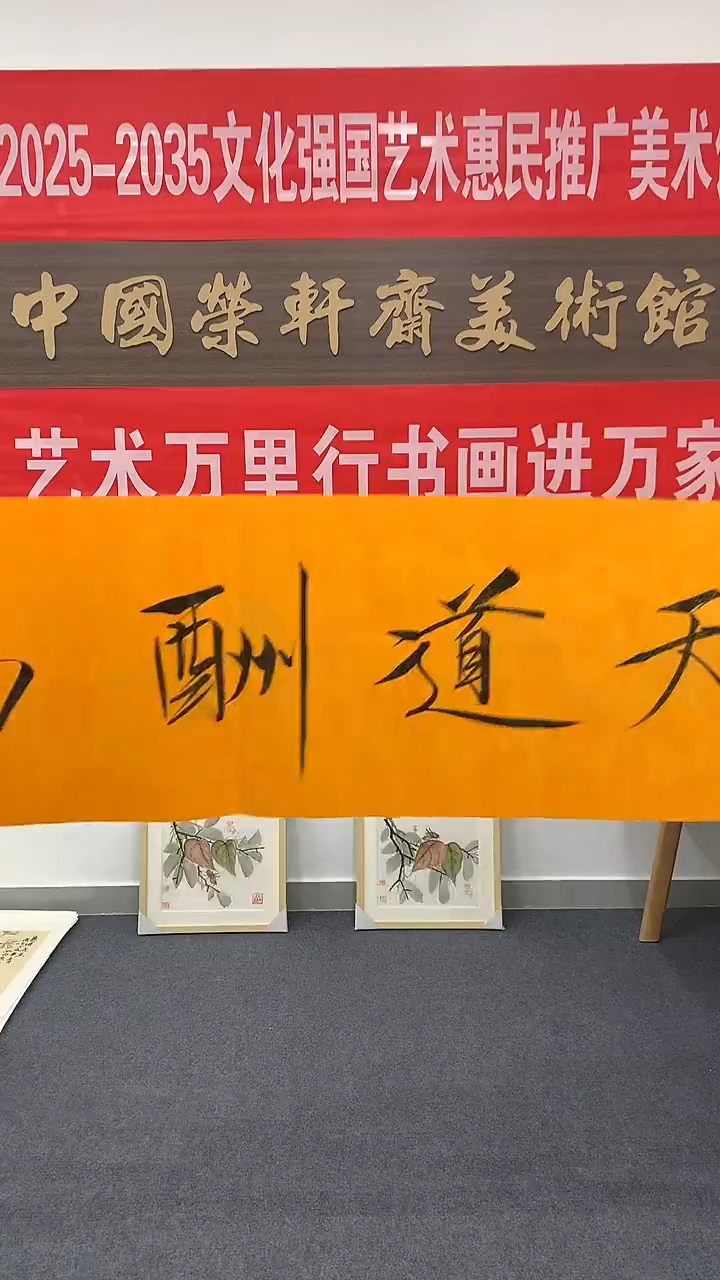 2025-2035文化强国艺术惠民推广美术
中國榮軒齋美術館
艺术万里行书画进万家
天道酬